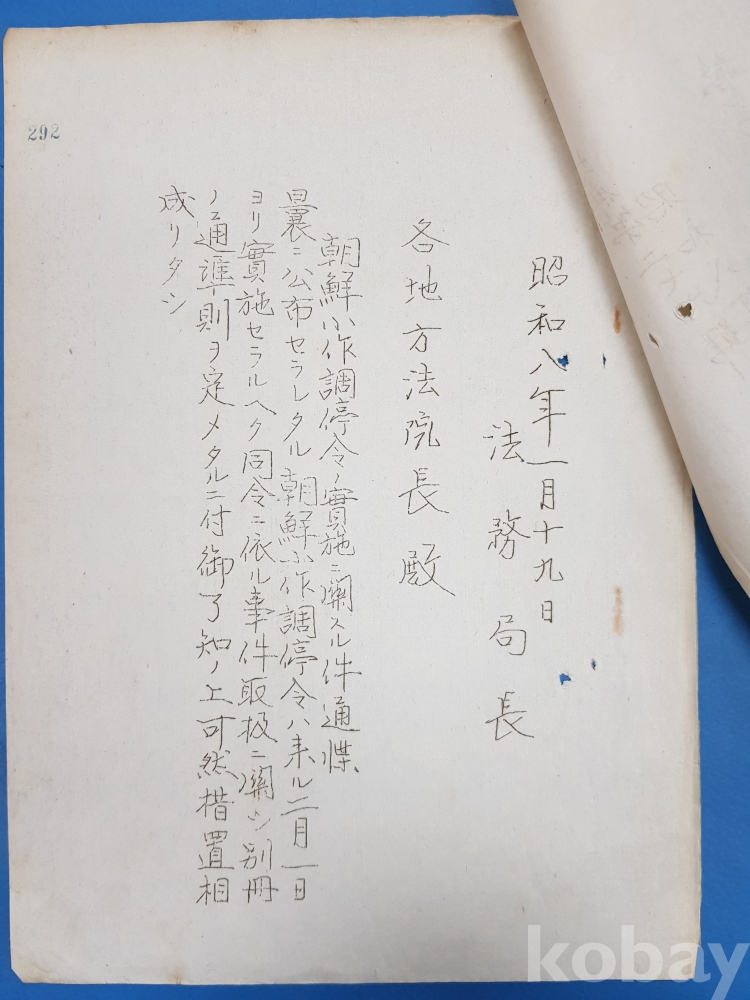 昭和八年一月十九日
法務局長
各地方法院長殿
朝鮮小作調停令ノ實施ニ關スル件通牒
曩ニ公布セラレタル朝鮮小作調停令ハ来ル二月一日
ヨリ實施セラルヘク同令ニ依ル事件取扱ニ關シ別冊
ノ通準則ヲ定メタルニ付御了知ノ上可然措置相
成リタシ
292
kobay